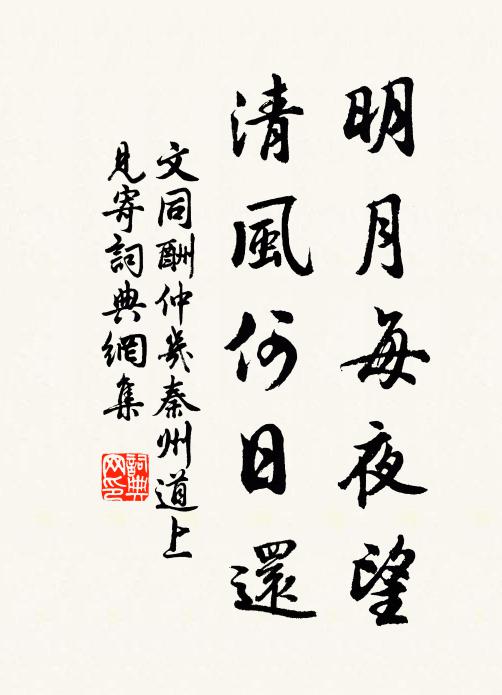 明月每夜望
清風何日還
文同酬仲幾秦州道上
見寄詞典網集
詞典網印